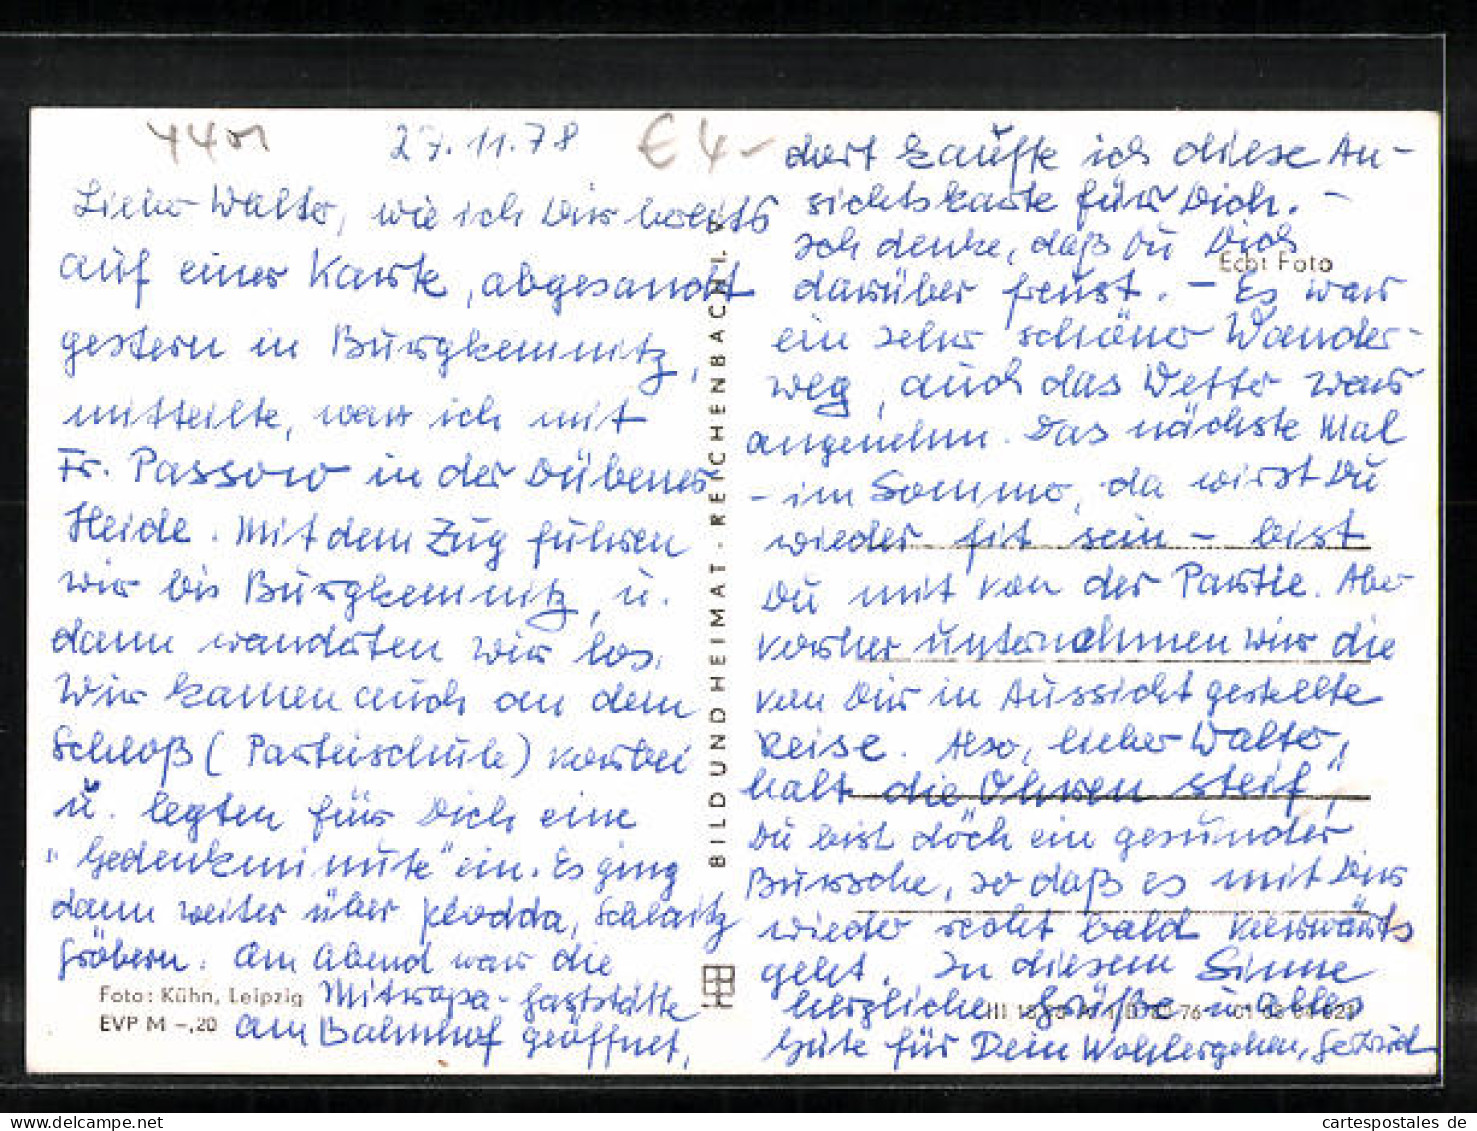 4401
27.11.78
€ 4,-
Lieber Walter, wie ich Dir bereits
auf einer Karte, abgesandt
gestern in Burgkemnitz,
mitteilte, war ich mit
Fr. Passow in der Dübener
Heide. Mit dem Zug fuhren
wir bis Burgkemnitz, u.
dann wanderten wir los.
Wir kamen auch an dem
Schloß (Parteischule) vorbei
u. legten für Dich eine
"Gedenkminute" ein. Es ging
dann weiter über Plodda, Schlaitz
Gröbern. Am Abend war die
Mitropa-Gaststätte
am Bahnhof geöffnet,
Foto: Kühn, Leipzig
EVP M -,20
BILD UND HEIMAT · REICHENBACH I. V.
dort kaufte ich diese An-
sichtskarte für Dich. -
Ich denke, daß Du Dich
Echt Foto
darüber freust. - Es war
ein sehr schöner Wander-
weg, auch das Wetter war
angenehm. Das nächste Mal
- im Sommer, da wirst Du
wieder fit sein - bist
Du mit von der Partie. Aber
vorher unternehmen wir die
von Dir in Aussicht gestellte
Reise. Also, lieber Walter,
halt die Ohren steif,
Du bist doch ein gesunder
Bursche, so daß es mit Dir
wieder recht bald vorwärts
geht. In diesem Sinne
herzliche Grüße u. alles
Gute für Dein Wohlergehen, Gertrud
cartespostales.de